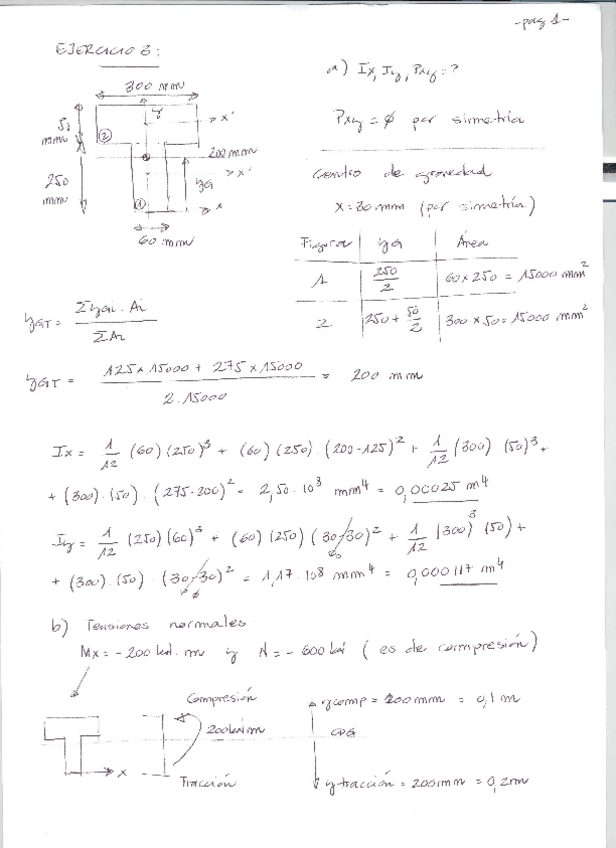 -pag 1-
EJERCICIO 3:
a) Ix, Iy, Pxy = ?
300 mm
y
x'
50 mm
2
Pxy = ∅ por simetría
200 mm
250 mm
yG
x'
Centro de gravedad
1
x
x = 30 mm (por simetría)
60 mm
Figura | yG | Área
1 | 250/2 | 60 x 250 = 15000 mm²
2 | 250 + 50/2 | 300 x 50 = 15000 mm²
yGT = Σ yGi . Ai / Σ Ai
yGT = 125 x 15000 + 275 x 15000 / 2.15000 = 200 mm
Ix = 1/12 (60) (250)³ + (60) (250) . (200-125)² + 1/12 (300) (50)³ +
+ (300) . (50) . (275-200)² = 2,50 . 10⁸ mm⁴ = 0,00025 m⁴
Iy = 1/12 (250) (60)³ + (60) (250) (30-30)² + 1/12 (300)³ (50) +
+ (300) . (50) (30-30)² = 1,17 . 10⁸ mm⁴ = 0,000117 m⁴
b) Tensiones normales
Mx = -200 kN.m y N = -600 kN (es de compresión)
Compresión
ycomp = 200 mm = 0,1 m
200 kN m
CDG
x
Tracción
ytracción = 200 mm = 0,2 m